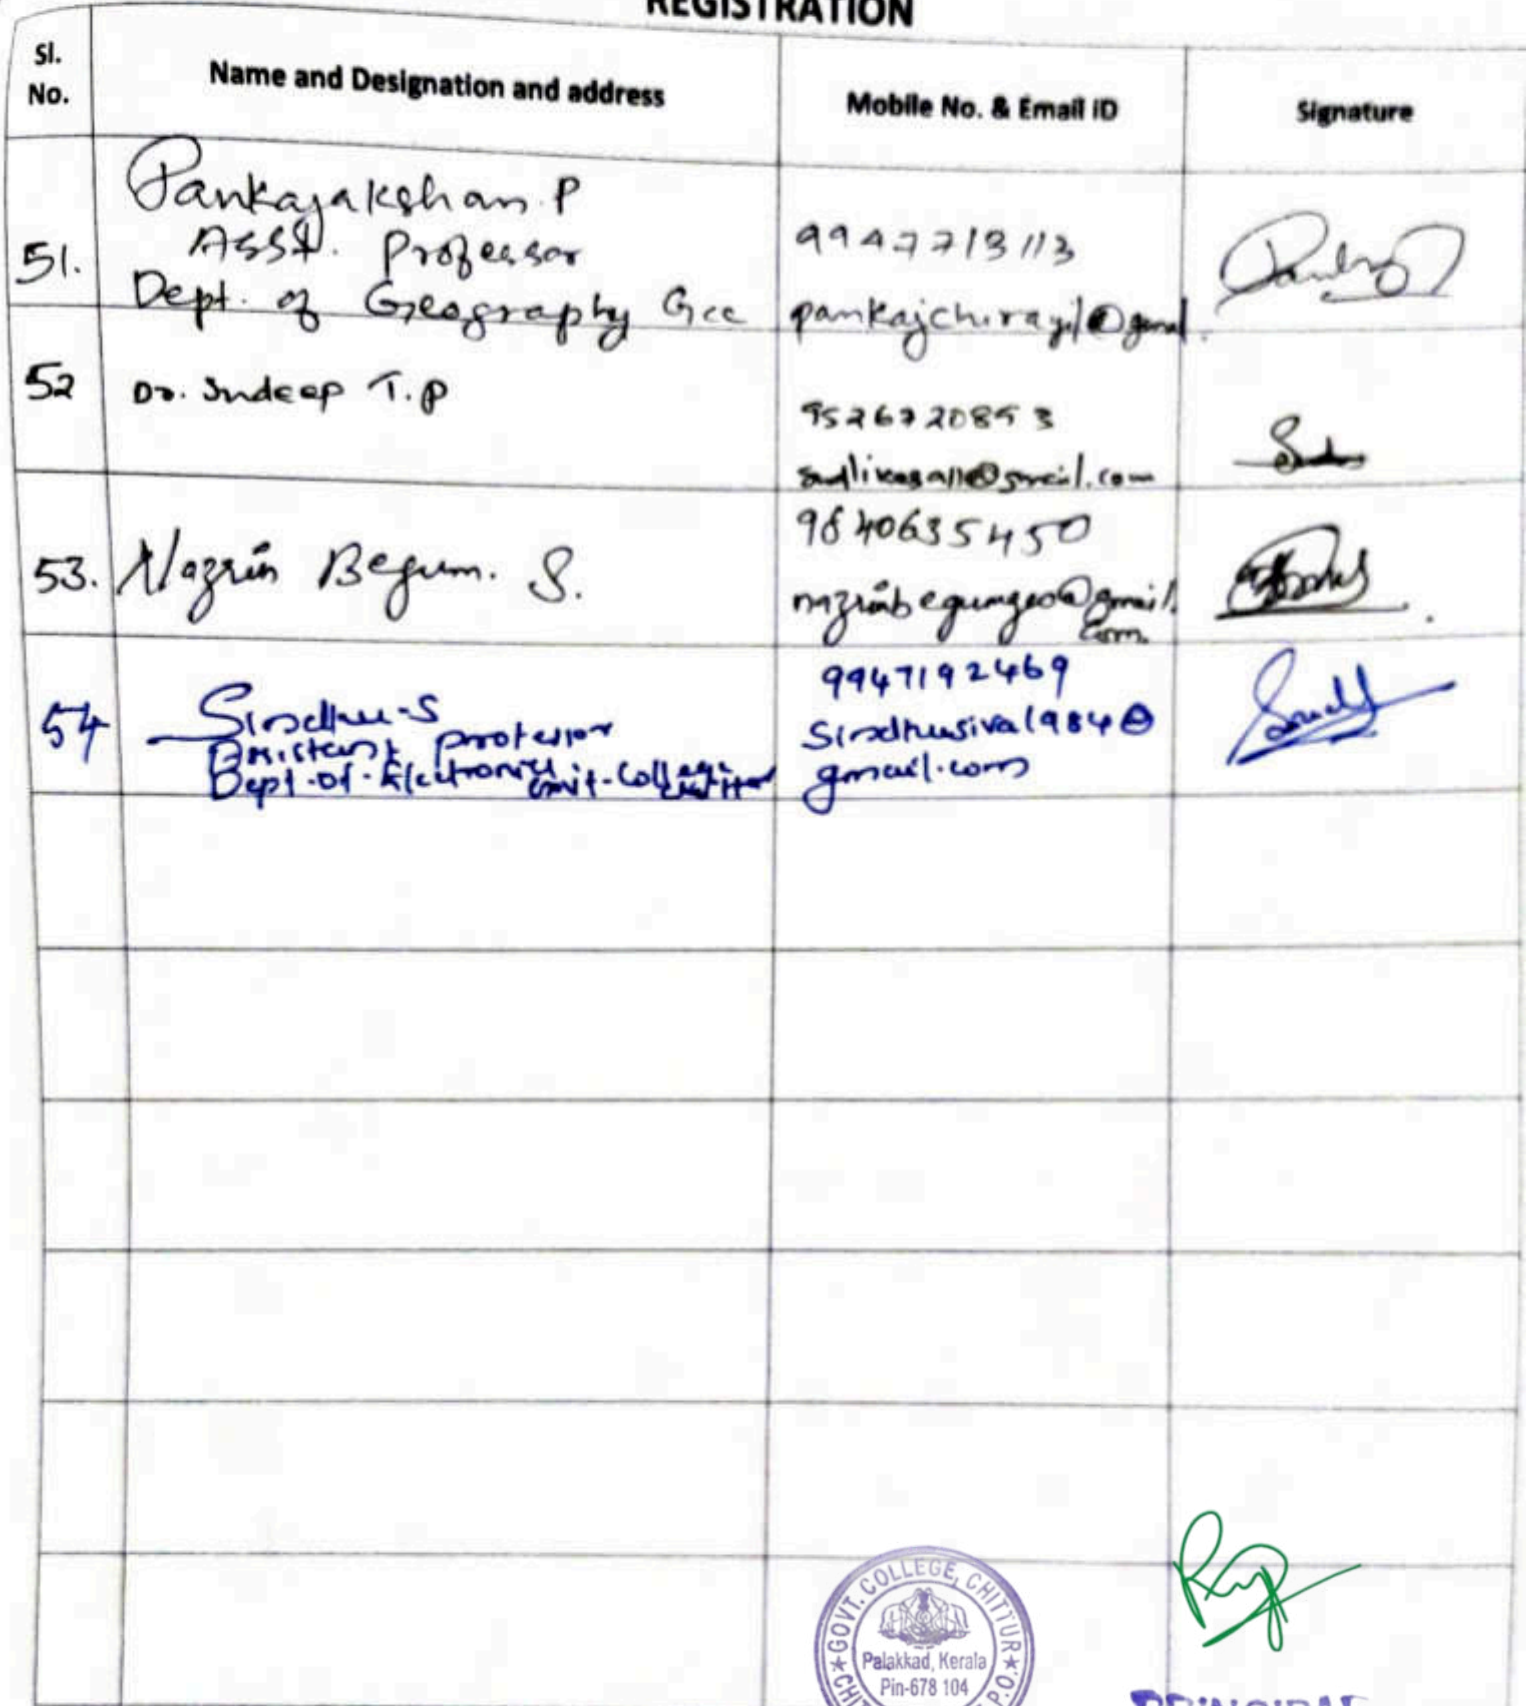 REGISTRATION
Sl. No.
Name and Designation and address
Mobile No. & Email ID
Signature
51.
Pankajakshan.P
Asst. Professor
Dept. of Geography Gcc
9947713113
pankajchirayil@gmal.
52
Dr. Sudeep T.P
53.
Nazrin Begum. S.
9840635450
nazrinbegumgeo@gmail.
com.
54
Sindhu-S
Assistant professor
Dept-of-Electronics Govt-College Chittur
9947192469
Sindhusiva1984@
gmail.com
GOVT. COLLEGE, CHITTUR
Palakkad, Kerala
Pin-678 104
P.O.
PRINCIPAL